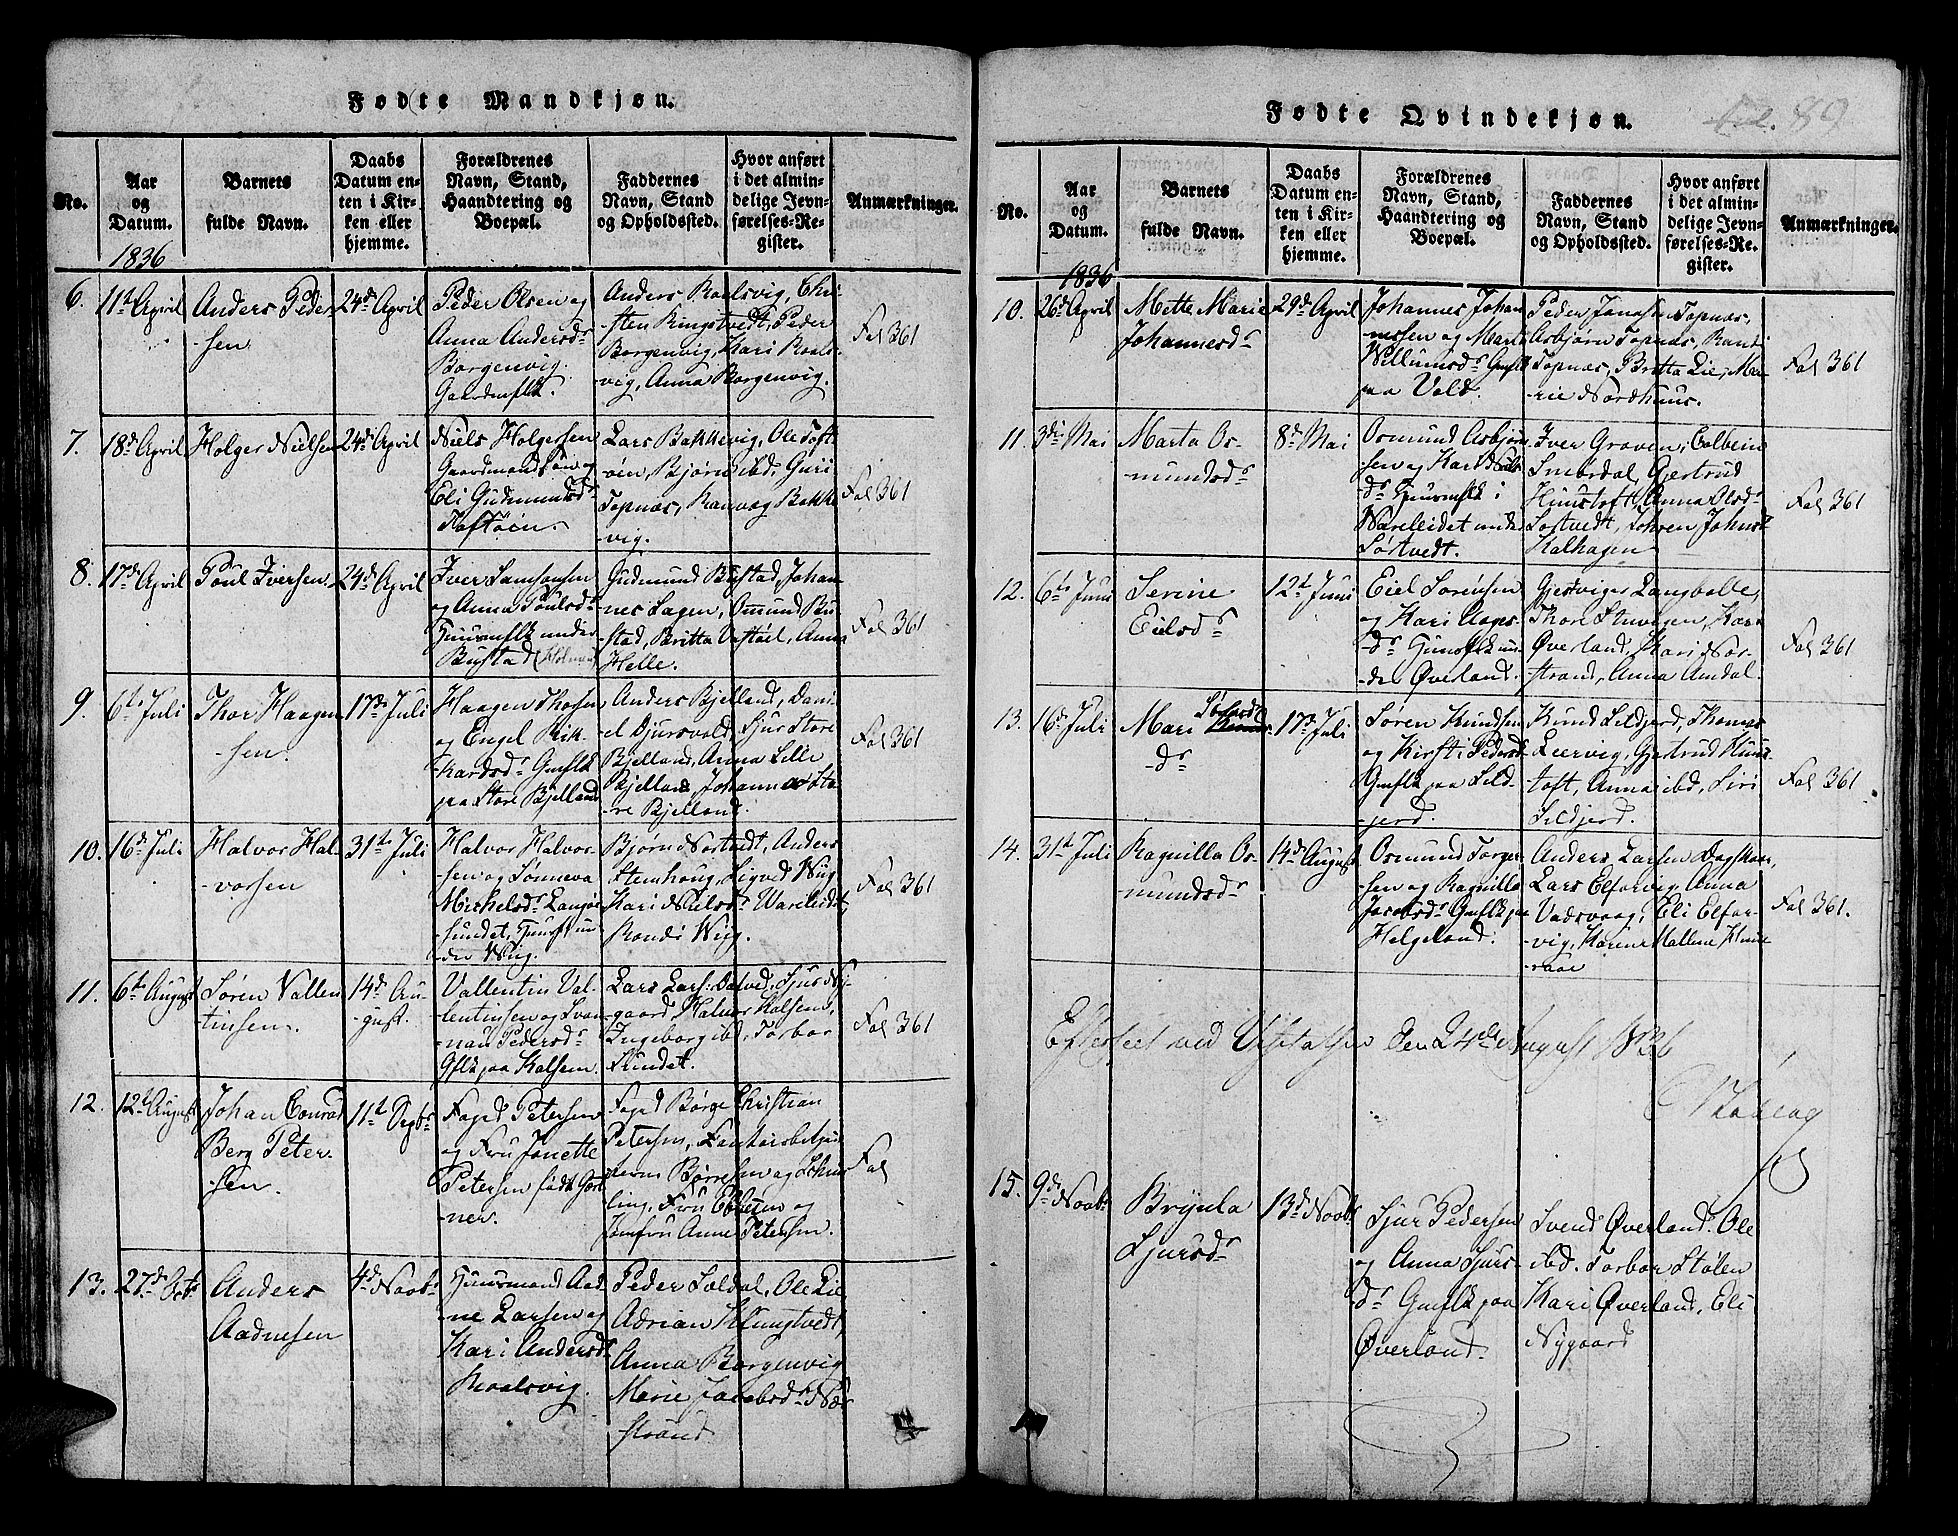 Fødte Mandkjøn.
No.
Aar
og
Datum.
Barnets
fulde Navn.
Daabs
Datum en-
ten i Kir-
ken eller
hjemme.
Forældrenes
Navn, Stand,
Haandtering og
Boepæl.
Faddernes
Navn, Stand
og Opholdssted.
Hvor anført
i det almin-
delige Jevn-
førelses-Re-
gister.
Anmærkninger.
1836
6.
11te April
Anders Peder
-sen
24de April
Peder Olsen og
Anna Andersdr
Borgenvig.
Gaardmflk.
Anders Roalsvig, Chri-
sten Ringstvedt, Peder
Borgenvig, Kari Roals-
vig, Anna Borgenvig.
Fol 361
7.
18de April
Holger Nielsen
24de April
Niels Holgersen
Gaardmand og
Eli Gudmundsdr
Toftøen.
Lars Bakkevig, Ole Toft-
øen, Bjørn ibd, Guri
Topnæs, Ranvog Bakke
vig.
Fol 361
8.
17de April
Poul Iversen
24de April
Iver Samsonsen
og Anna Poulsdr
Huusmflk under
Bustad (Holmen)
Gudmund Bustad, Johan
nes Lagen, Omund Bu
stad, Britta Vastøel, Anna
Helle.
Fol 361
9.
6te Juli
Thor Haagen
-sen.
17de Juli
Haagen Thorsen
og Engel Rik-
kardsdr Gmflk
paa Store Bjelland
Anders Bjelland, Dani-
el Djursvold, Sjur Store
Bjelland, Anna Lille
Bjelland, Johanna Sto-
re Bjelland.
Fol 361
10.
16de Juli
Halvor Hal
-vorsen
31te Juli
Halvor Halvor-
sen og Sønneva
Michelsdr Langøe
sundet, Huusflk un
der Wiig.
Bjørn Nortvedt, Anders
Stemhoug, Sigved Wiig
Kari Nielsdr Wareleidet,
Randi Wiig.
Fol 361
11.
6te August
Søren Vallen
-tinsen.
14de Au-
gust.
Vallentin Val-
lentinsen og
Pedersdr
Gflk paa Kalsem.
Lars Lars: Dalved, Sjur Ny-
gaard, Halvor Kalsem,
Ingeborg ibd, Torbor
Sundet.
Fol 361
12.
12te August
Johan Conrad
Berg Peter
sen.
11te Sepbr
Foged Petersen
og Fru Janette
Petersen født Gort
-ner.
Foged Børge Christian
Petersen,
Børresen og
ling, Fru og
Jomfru Anne Petersen.
Fol
13.
27de Octbr
Anders
Aadnesen
4de Novbr
Huusmand Aad
ne Larsen og
Kari Andersdr
Roalsvig.
Peder Soldal, Ole Lie
Adrian Klungtvedt,
Anna Borgenvig
Merie Jacobsdr Nær
strand
Fødte Qvindekjøn.
Fol. 89
No.
Aar
og
Datum.
Barnets
fulde Navn.
Daabs
Datum en-
ten i Kir-
ken eller
hjemme.
Forældrenes
Navn, Stand,
Haandtering og
Boepæl.
Faddernes
Navn, Stand
og Opholdssted.
Hvor anført
i det almin-
delige Jevn-
førelses-Re-
gister.
Anmærkninger.
1836
10.
26de April
Mette Marie
Johannesdr
29de April
Johannes Johan
nessen og Marta
Willumsdr Gmflk
paa Vold.
Peder Jonassen Topnæs,
Asbjørn Topnæs, Randi
Topnæs, Britta Lie, Ma-
rie Nordhuus.
Fol 361
11.
3die Mai
Marta Os-
mundsdr
8de Mai
Osmund Asbjørn
sen og Kari Niels
dr Huusmflk i
Wareleidet under
Sørtvedt.
Iver Groven, Colbein
Smørdal, Gjertrud
Huustoft, Anna Olsdr
Sørtvedt, Johnsdr
Kalhagen
Fol 361
12.
6te Juni
Serine
Eielsdr
12te Juni
Eiel Sørensen
og Kari Aages
dr Huusflk un-
der Øverland.
Langballe,
Thore, Kari
Øverland, Kari Nær-
strand, Anna Amdal.
Fol 361
13.
16de Juli
Mari Sørens
-dr
17de Juli
Søren Knudsen
og Kirsti Pedersdr
Gmflk paa Sild-
-jerd.
Knud Sildjerd, Thomas
Leervig, Gjertrud Huus
toft, Anna ibd, Siri
Sildjerd.
Fol 361
14.
31te Juli
Ragnilla Os-
mundsdr
14de August
Osmund Torger-
sen og Ragnilla
Jacobsdr Gmflk paa
Helgeland.
Anders Larsen Dagsland,
Lars Elfarvig, Anna
Vadsvaag, Eli Elfar-
vig, Karen Malene Knuts
raae
Fol 361.
Efterseet ved Visitatsen den 24de August 1836
15.
9de Novbr
Brynla
Sjursdr
13de Novbr
Sjur Pedersen
og Anna Sjurs-
dr Gmflk paa
Øverland.
Svend Øverland. Ole
ibd. Torbor Stølen
Kari Øverland, Eli
Nygaard